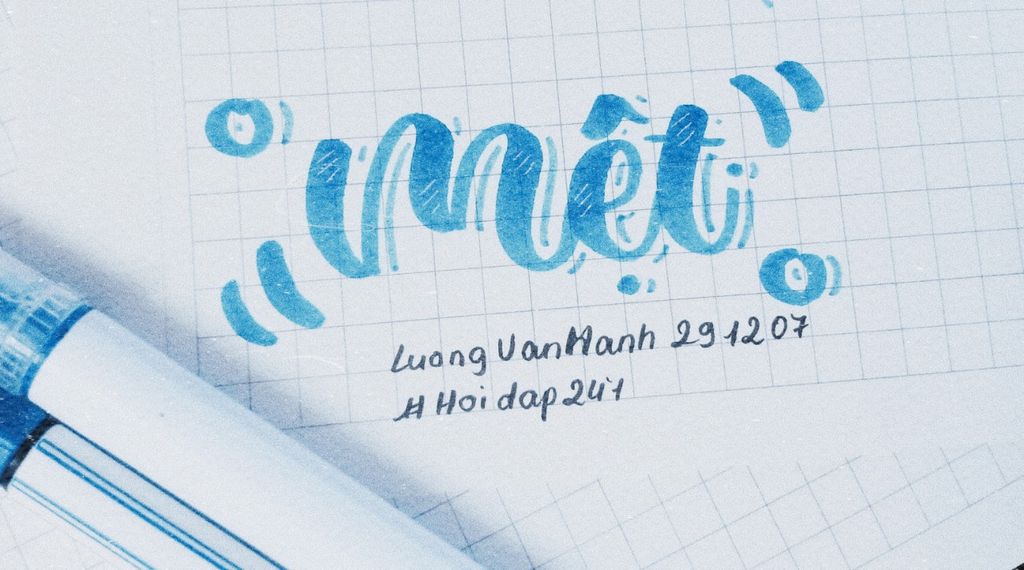 mệt
LuongVanManh 291207
#Hoidap247